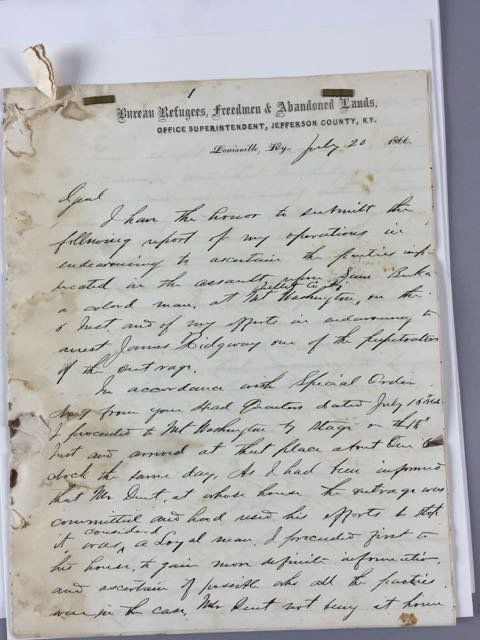 Bureau Refugees, Freedmen & Abandoned Lands,
OFFICE SUPERINTENDENT, JEFFERSON COUNTY, KY.
Louisville, Ky. July 20 1866.
Genl
I have the honor to submit the
following report of my operations in
endeavouring to ascertain the parties imp-
licated in the assault upon Sam
a colord man, at Mt Washington, Bullitt Co Ky, on the
6 Inst, and of my efforts in endeavouring to
arrest James Ridgway one of the perpetrators
of the outrage.
In accordance with Special Order
No 9 from your Head Quarters dated July 18
I proceeded to Mt Washington by stage on the 18"
Inst and arrived at that place about One O
clock the same day, As I had been informed
that Mr Dent, at whose house the outrage was
committed and had used his efforts to stop
it was considered a Loyal man, I proceeded first to
his house, to gain more definite information,
and ascertain if possible who all the parties
were in the case, Mr Dent not being at home